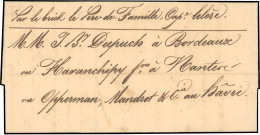 Par le brick le Père de Famille, Cape. Lelièe.
M.M. J. Bte. Dupuch à Bordeaux
ou Haranchipy fres à Nantes
ou Opperman, Mandrot & Cie au Hâvre